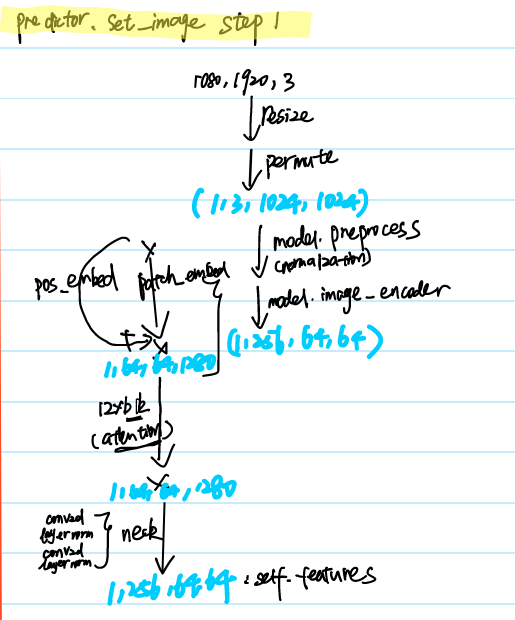 predictor. set_image step 1
1080, 1920, 3
Resize
permute
(1,3, 1024, 1024)
model. preprocess
(normalization)
model. image_encoder
(1,256, 64, 64)
x
pos_embed patch_embed
+
x
1,64,64,1280
12xblk
(attention)
x
1,64,64,1280
conv2d
layernorm
conv2d
layernorm
neck
1,256,64,64 : self.features